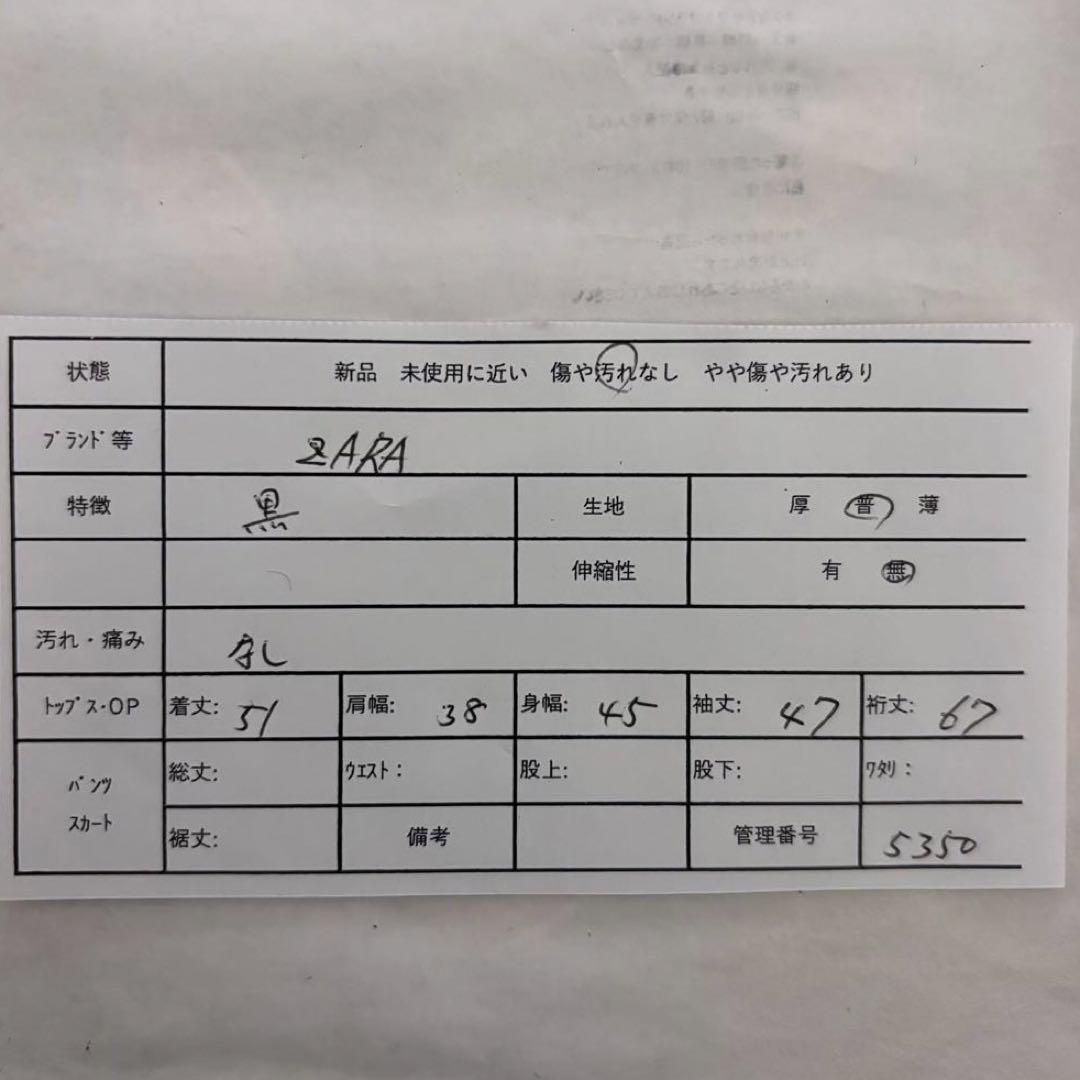 状態 新品 未使用に近い 傷や汚れなし やや傷や汚れあり
ブランド等 ZARA
特徴 黒 生地 厚 普 薄
伸縮性 有 無
汚れ・痛み なし
トップス・OP 着丈: 51 肩幅: 38 身幅: 45 袖丈: 47 裄丈: 67
パンツ 総丈: ウエスト: 股上: 股下: ワタリ:
スカート 裾丈: 備考 管理番号 5350